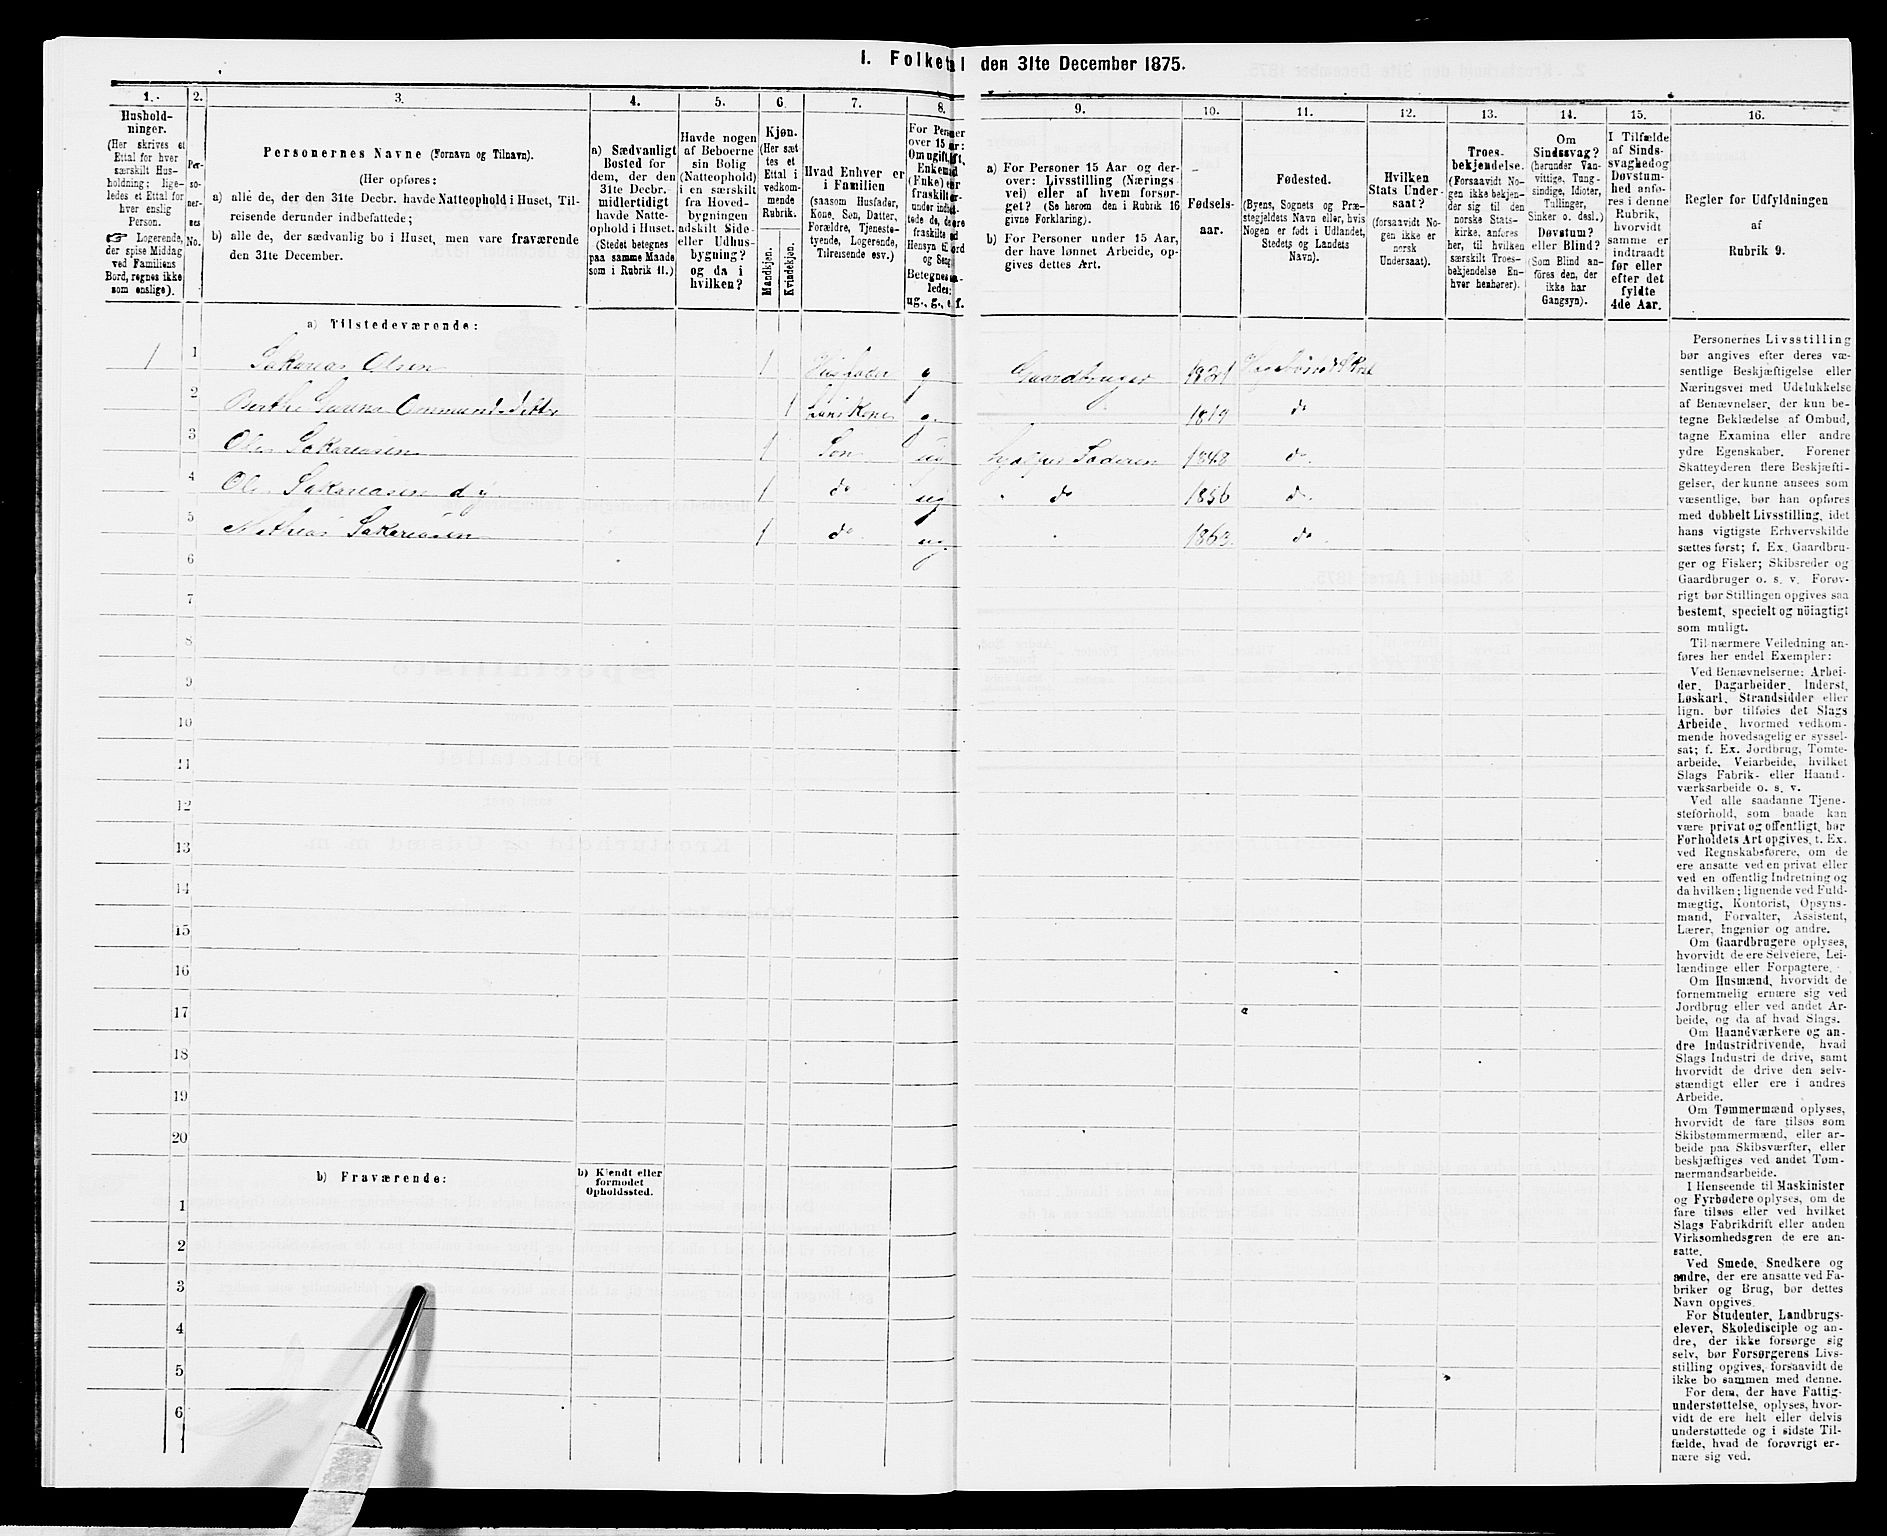 I. Folketal den 31te December 1875.
1.
2.
3.
4.
5.
6.
7.
8.
9.
10.
11.
12.
13.
14.
15.
16.
Hushold-
ninger.
(Her skrives et
Ettal for hver
særskilt Hus-
holdning; lige-
ledes et Ettal for
hver enslig
Person.
☞ Logerende,
der spise Middag
ved Familiens
Bord, regnes ikke
som enslige).
Per-
so-
ner-
nes
No.
Personernes Navne (Fornavn og Tilnavn).
(Her opføres:
a) alle de, der den 31te Decbr. havde Natteophold i Huset, Til-
reisende derunder indbefattede;
b) alle de, der sædvanlig bo i Huset, men vare fraværende
den 31te December.
a) Sædvanligt
Bosted for
dem, der den
31te Decbr.
midlertidigt
havde Natte-
ophold i Huset.
(Stedet betegnes
paa samme Maade
som i Rubrik 11.)
Havde nogen
af Beboerne
sin Bolig
(Natteophold)
i en særskilt
fra Hoved-
bygningen
adskilt Side-
eller Udhus-
bygning?
og da i
hvilken?
Kjøn.
(Her sæt
tes et
Ettal i
vedkom-
mende
Rubrik.
Mandkjøn.
Kvindekjøn.
Hvad Enhver er
i Familien
(saasom Husfader,
Kone, Søn, Datter,
Forældre, Tjeneste-
tyende, Logerende,
Tilreisende osv.)
For Personer
over 15 Aar:
Om ugift, gift,
Enkemand
(Enke) eller
fraskilt,
herunder indbefat-
tede de, der ere
fraskilte
Hensyn til Bord
og Seng.
Betegnes saa-
ledes:
ug., g., e., f.
a) For Personer 15 Aar og der-
over: Livsstilling (Nærings-
vei) eller af hvem forsør-
get? (Se herom den i Rubrik 16
givne Forklaring).
b) For Personer under 15 Aar,
der have lønnet Arbeide, op-
gives dettes Art.
Fødsels-
aar.
Fødested.
(Byens, Sognets og Præ-
stegjeldets Navn eller, hvis
Nogen er født i Udlandet,
Stedets og Landets
Navn).
Hvilken
Stats Under-
saat?
(forsaavidt No-
gen ikke er
norsk
Undersaat).
Troes-
bekjendelse.
(Forsaavidt No-
gen ikke bekjen-
der sig til den
norske Stats-
kirke, anføres
her, til hvilken
særskilt Troes-
bekjendelse En-
hver henhører).
Om
Sindssvag?
(herunder Van-
vittige, Tung-
sindige, Idioter,
Tullinger,
Sinker o. desl.)
Døvstum?
eller Blind?
(Som Blind an-
føres den, der
ikke har
Gangsyn).
I Tilfælde
af Sinds-
svaghed og
Døvstum-
hed anfø-
res i denne
Rubrik,
hvorvidt
samme er
indtraadt
før eller
efter det
fyldte
4de Aar.
Regler for Udfyldningen
af
Rubrik 9.
a) Tilstedeværende:
1 1 Sakarias Olsen 1 Husfader g Gaardbruger 1821
2 1 hans Kone g. 1819 do
3 Ole Sakariasen 1 Søn ug 1848 do
4 Ole Sakariasen d y. 1 do ug do 1856 do
5 Mathias Sakariasen 1 do ug 1863. do
6
7
8
9
10
11
12
13
14
15
16
17
18
19
20
b) Fraværende:
b) Kjendt eller
formodet
Opholdssted.
1
2
3
4
5
6
Personernes Livsstilling
bør angives efter deres væ-
sentlige Beskjæftigelse eller
Næringsvei med Udelukkelse
af Benævnelser, der kun be-
tegne Beklædelse af Ombud,
tagne Examina eller andre
ydre Egenskaber. Forener
Skatteyderen flere Beskjæfti-
gelser, der kunne ansees som
væsentlige, bør han opføres
med dobbelt Livsstilling, idet
hans vigtigste Erhvervskilde
sættes først; f. Ex. Gaardbru-
ger og Fisker; Skibsreder og
Gaardbruger o. s. v. Forøv-
rigt bør Stillingen opgives saa
bestemt, specielt og nøiagtigt
som muligt.
Til nærmere Veiledning an-
føres her endel Exempler:
Ved Benævnelserne: Arbei-
der, Dagarbeider, Inderst,
Løskarl, Strandsidder eller
lign. bør tilføies det Slags
Arbeide, hvormed vedkom-
mende hovedsagelig er syssel-
sat; f. Ex. Jordbrug, Tomte-
arbeide, Veiarbeide, hvilket
Slags Fabrik- eller Haand-
værksarbeide o. s. v.
Ved alle saadanne Tjene-
steforhold, som baade kan
være privat og offentligt, bør
Forholdets Art opgives, t. Ex.
ved Regnskabsførere, om de
ere ansatte ved en privat eller
ved en offentlig Indretning og
da hvilken; lignende ved Fuld-
mægtig, Kontorist, Opsyns-
mand, Forvalter, Assistent,
Lærer, Ingeniør og andre.
Om Gaardbrugere oplyses,
hvorvidt de ere Selveiere, Lei-
lændinge eller Forpagtere.
Om Husmænd, hvorvidt de
fornemmelig ernære sig ved
Jordbrug eller ved andet Ar-
beide, og da af hvad Slags.
Om Haandværkere og an-
dre Industridrivende, hvad
Slags Industri de drive, samt
hvorvidt de drive den selv-
stændigt eller ere i andres
Arbeide.
Om Tømmermænd oplyses,
hvorvidt de fare tilsøs som
Skibstømmermænd, eller ar-
beide paa Skibsværfter, eller
beskjæftiges ved andet Tøm-
mermandsarbeide.
I Henseende til Maskinister
og Fyrbødere oplyses, om de
fare tilsøs eller ved hvilket
Slags Fabrikdrift eller anden
Virksomhedsgren de ere an-
satte.
Ved Smede, Snedkere og
andre, der ere ansatte ved Fa-
briker og Brug, bør dettes
Navn opgives.
For Studenter, Landbrugs-
elever, Skoledisciple og an-
dre, der ikke forsørge sig
selv, bør Forsørgerens Livs-
stilling opgives, forsaavidt de
ikke bo sammen med denne.
For dem, der have Fattig-
understøttelse, oplyses, hvor-
vidt de ere helt eller delvis
understøttede og i sidste Til-
fælde, hvad de forøvrigt er-
nære sig ved.